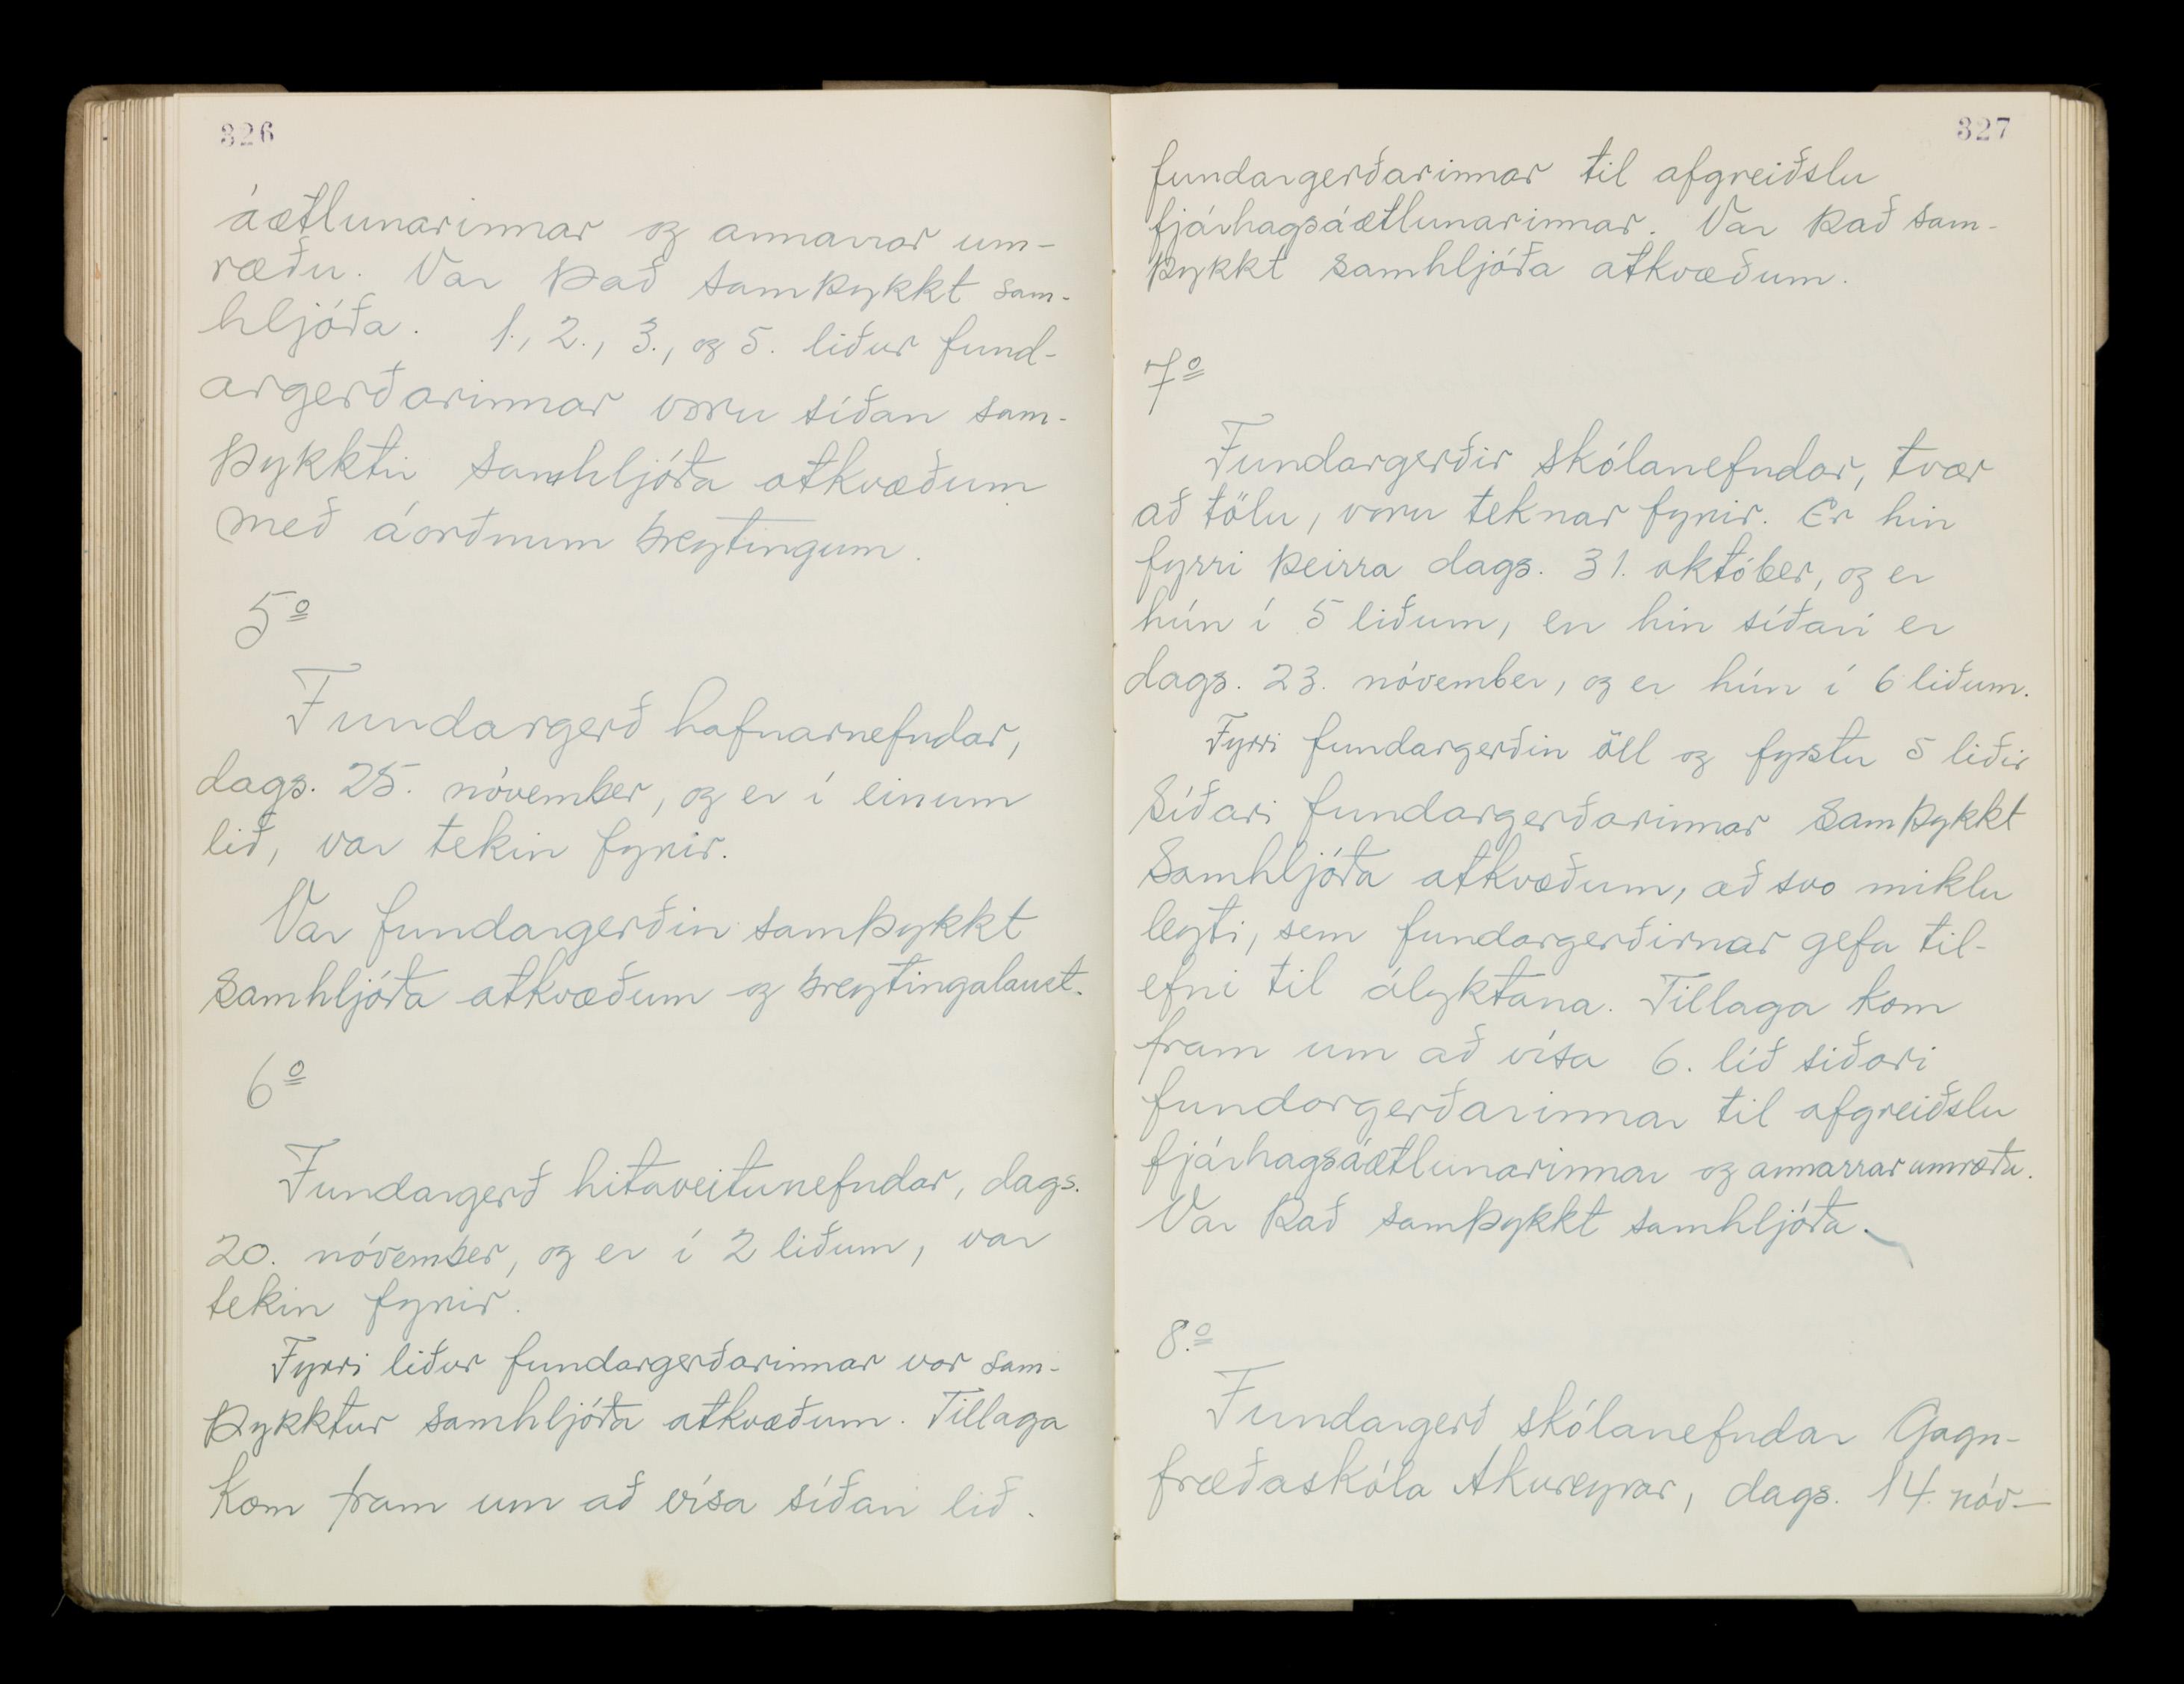 326
áætlunarinnar og annarrar um-
ræðu. Var það samþykkt sam-
hljóða. 1., 2., 3., og 5. liður fund-
argerðarinnar voru síðan sam-
þykktir samhljóða atkvæðum
með áorðnum breytingum.
5º
Fundargerð hafnarnefndar,
dags. 25. nóvember, og er í einum
lið, var tekin fyrir.
Var fundargerðin samþykkt
samhljóða atkvæðum og breytingalaust.
6º
Fundargerð hitaveitunefndar, dags.
20. nóvember, og er í 2 liðum, var
tekin fyrir.
Fyrri liður fundargerðarinnar var sam-
þykktur samhljóða atkvæðum. Tillaga
kom fram um að vísa síðari lið.
327
fundargerðarinnar til afgreiðslu
fjárhagsáætlunarinnar. Var það sam-
þykkt samhljóða atkvæðum.
7º
Fundargerðir skólanefndar, tvær
að tölu, voru teknar fyrir. Er hin
fyrri þeirra dags. 31. október, og er
hún í 5 liðum, en hin síðari er
dags. 23. nóvember, og er hún í 6 liðum.
Fyrri fundargerðin öll og fyrstu 5 liðir
síðari fundargerðarinnar samþykkt
samhljóða atkvæðum, að svo miklu
leyti, sem fundargerðirnar gefa til-
efni til ályktana. Tillaga kom
fram um að vísa 6. lið síðari
fundargerðarinnar til afgreiðslu
fjárhagsáætlunarinnar og annarrar umræðu.
Var það samþykkt samhljóða.
8.º
Fundargerð skólanefndar Gagn-
fræðaskóla Akureyrar, dags. 14. nóv-